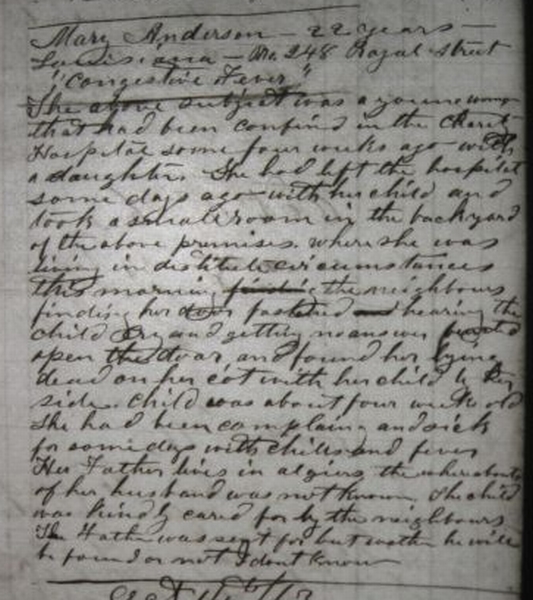 Mary Anderson — 22 years —
Louisiana — No. 248 Royal Street
"Congestive Fever"
The above subject was a young woman
that had been confind in the Charity
Hospital some four weeks ago with
a daughter. She had left the hospital
some days ago with her child and
took a small room in the backyard
of the above premises. where she was
living in distitute circumstances
this morning the neighbours
finding her door fastened and hearing the
child cry and getting no answer bursted
open the door and found her lying
dead on her cot with her child by her
side. Child was about four weeks old
She had been complaing and sick
for some days with chills and fever
Her Father lives in algiers the whereabouts
of her husband was not known. The child
was kindly cared for by the neighbours
The Father was sent for but wether he will
be found or not I dont know